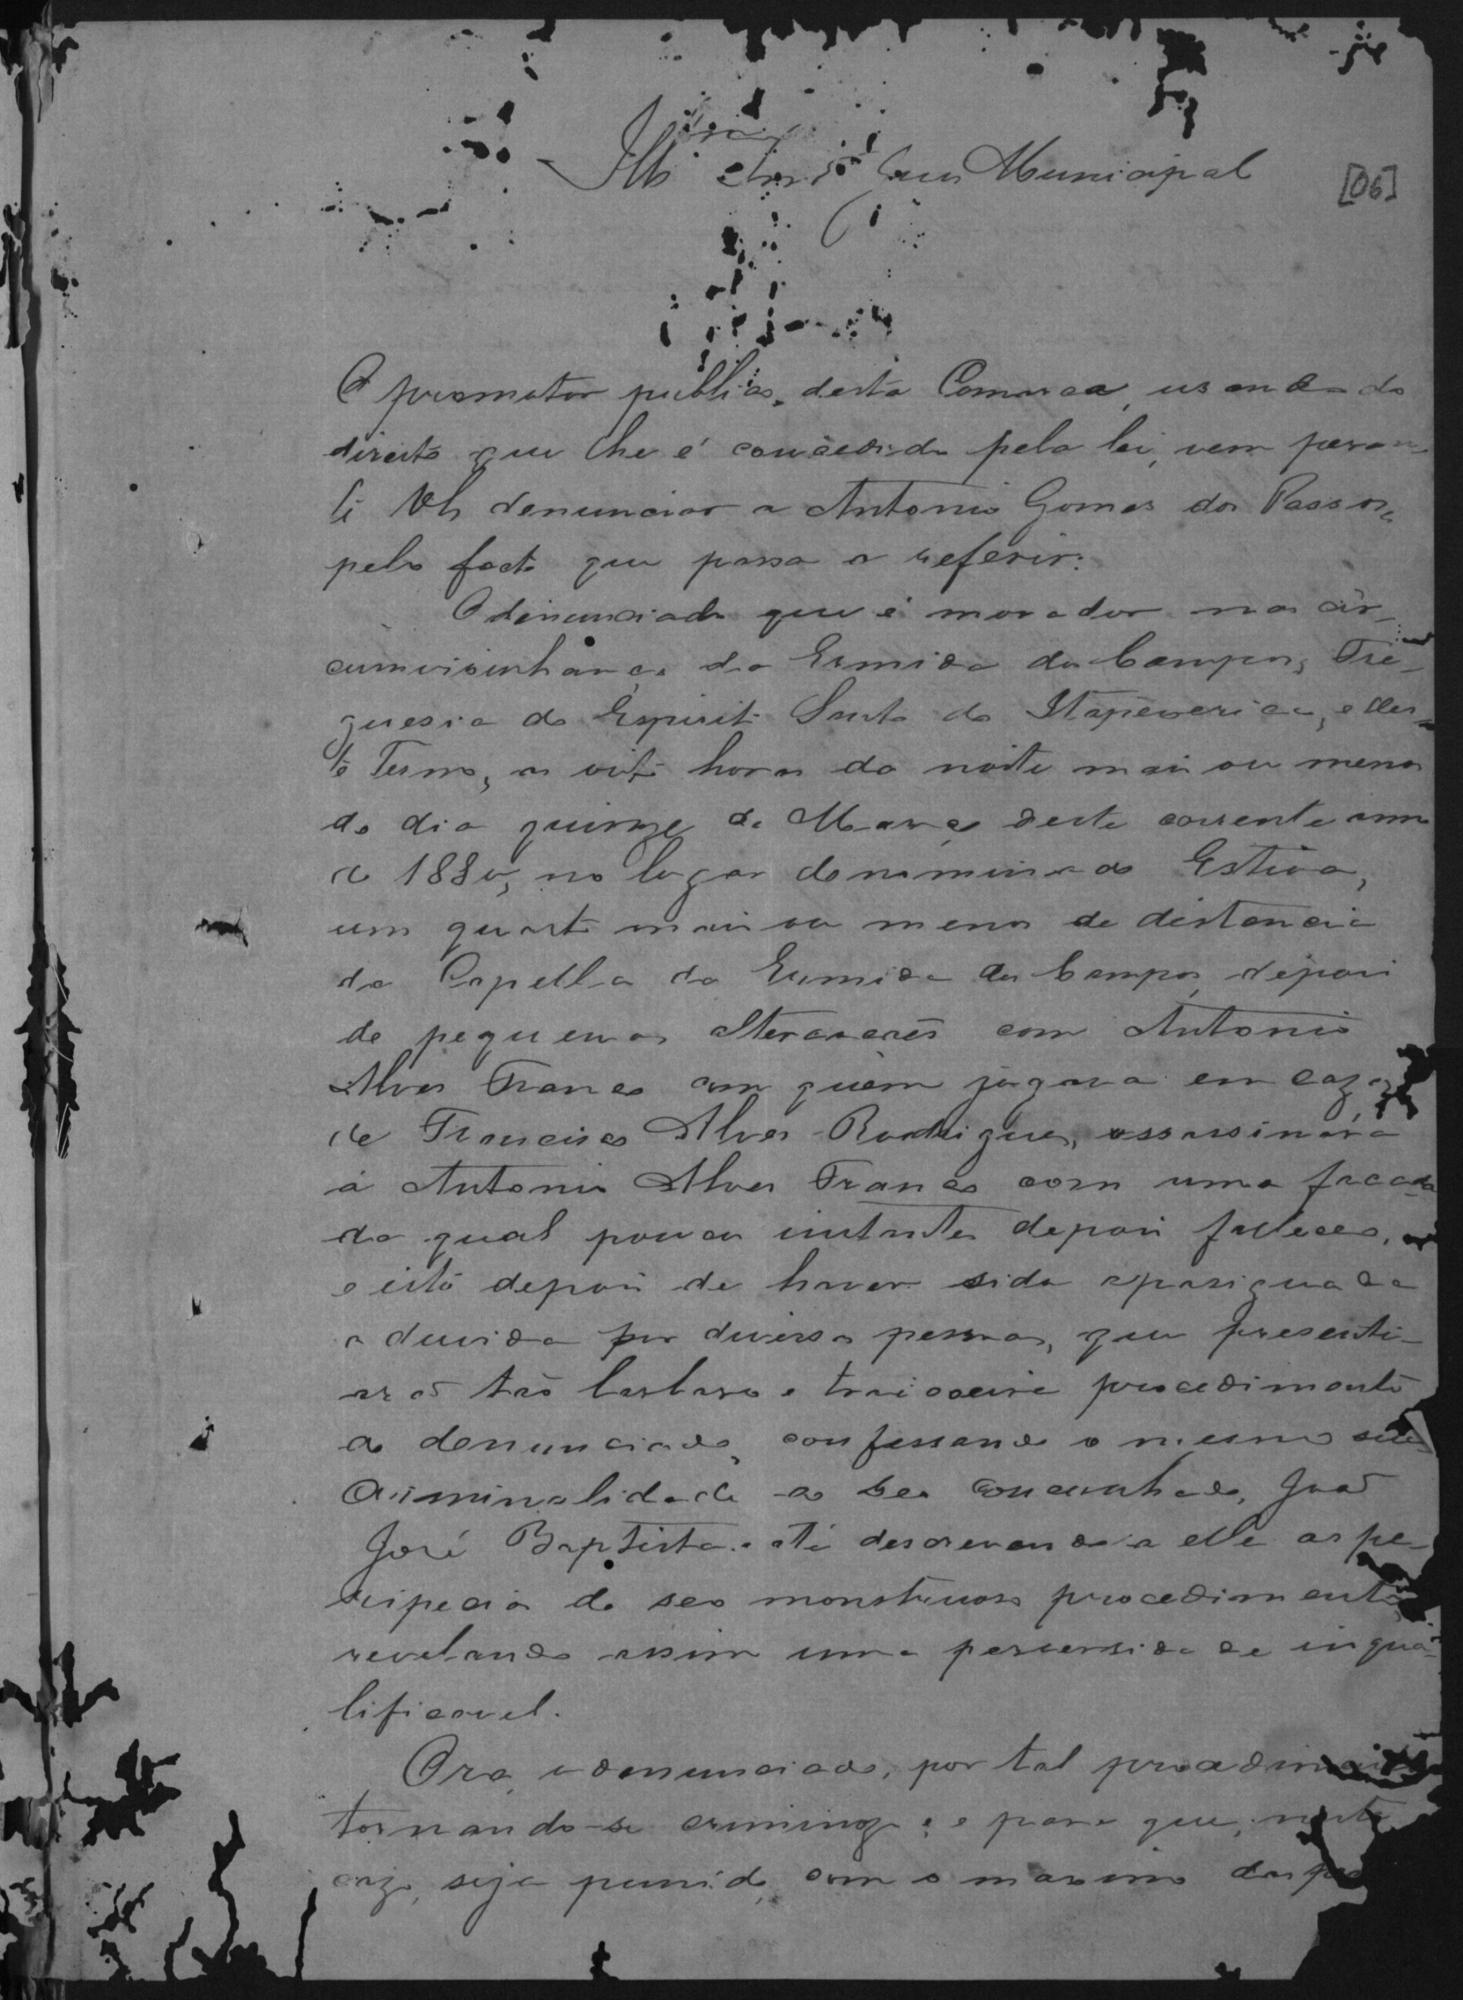 Illmo Snr Juiz Municipal
[06]
O promotor publico, desta Comarca, usando do
direito que lhe é concedido pela lei, vem peran-
te VS denunciar a Antonio Gomes dos Passos,
pelo facto que passa a referir:
O denunciado que é morador nas cir-
cumvisinhanças da Ermida do Campos, Fre-
guesia do Espirito Santo do Itapecerica, e des-
te Termo, as oito horas da noite mais ou menos
do dia quinze de Março deste corrente anno
de 1880, no lugar denominado Estiva,
um quarto mais ou menos de distancia
da Capella da Ermida do Campos, depois
de pequenas altercacões com Antonio
Alves Franco com quem jogava em caza
de Francisco Alves Rodrigues, assassinára
á Antonio Alves Franco com uma facada
da qual poucos instantes depois falleceo,
e isto depois de haver sido apasiguada
a duvida por diversas pessoas, que presenti-
arão tão barbaro e traiçoeiro procedimento
do denunciado, confessando o mesmo sua
criminalidade ao seo concunhado, João
José Baptista e até descrevendo a elle as pe-
ripecias do seo monstruoso procedimento,
revelando assim uma perversidade inqua-
lificavel.
Ora, o denunciado, por tal procedimento
tornando-se criminozo; e para que, neste
cazo, seja punido, com o maximo das